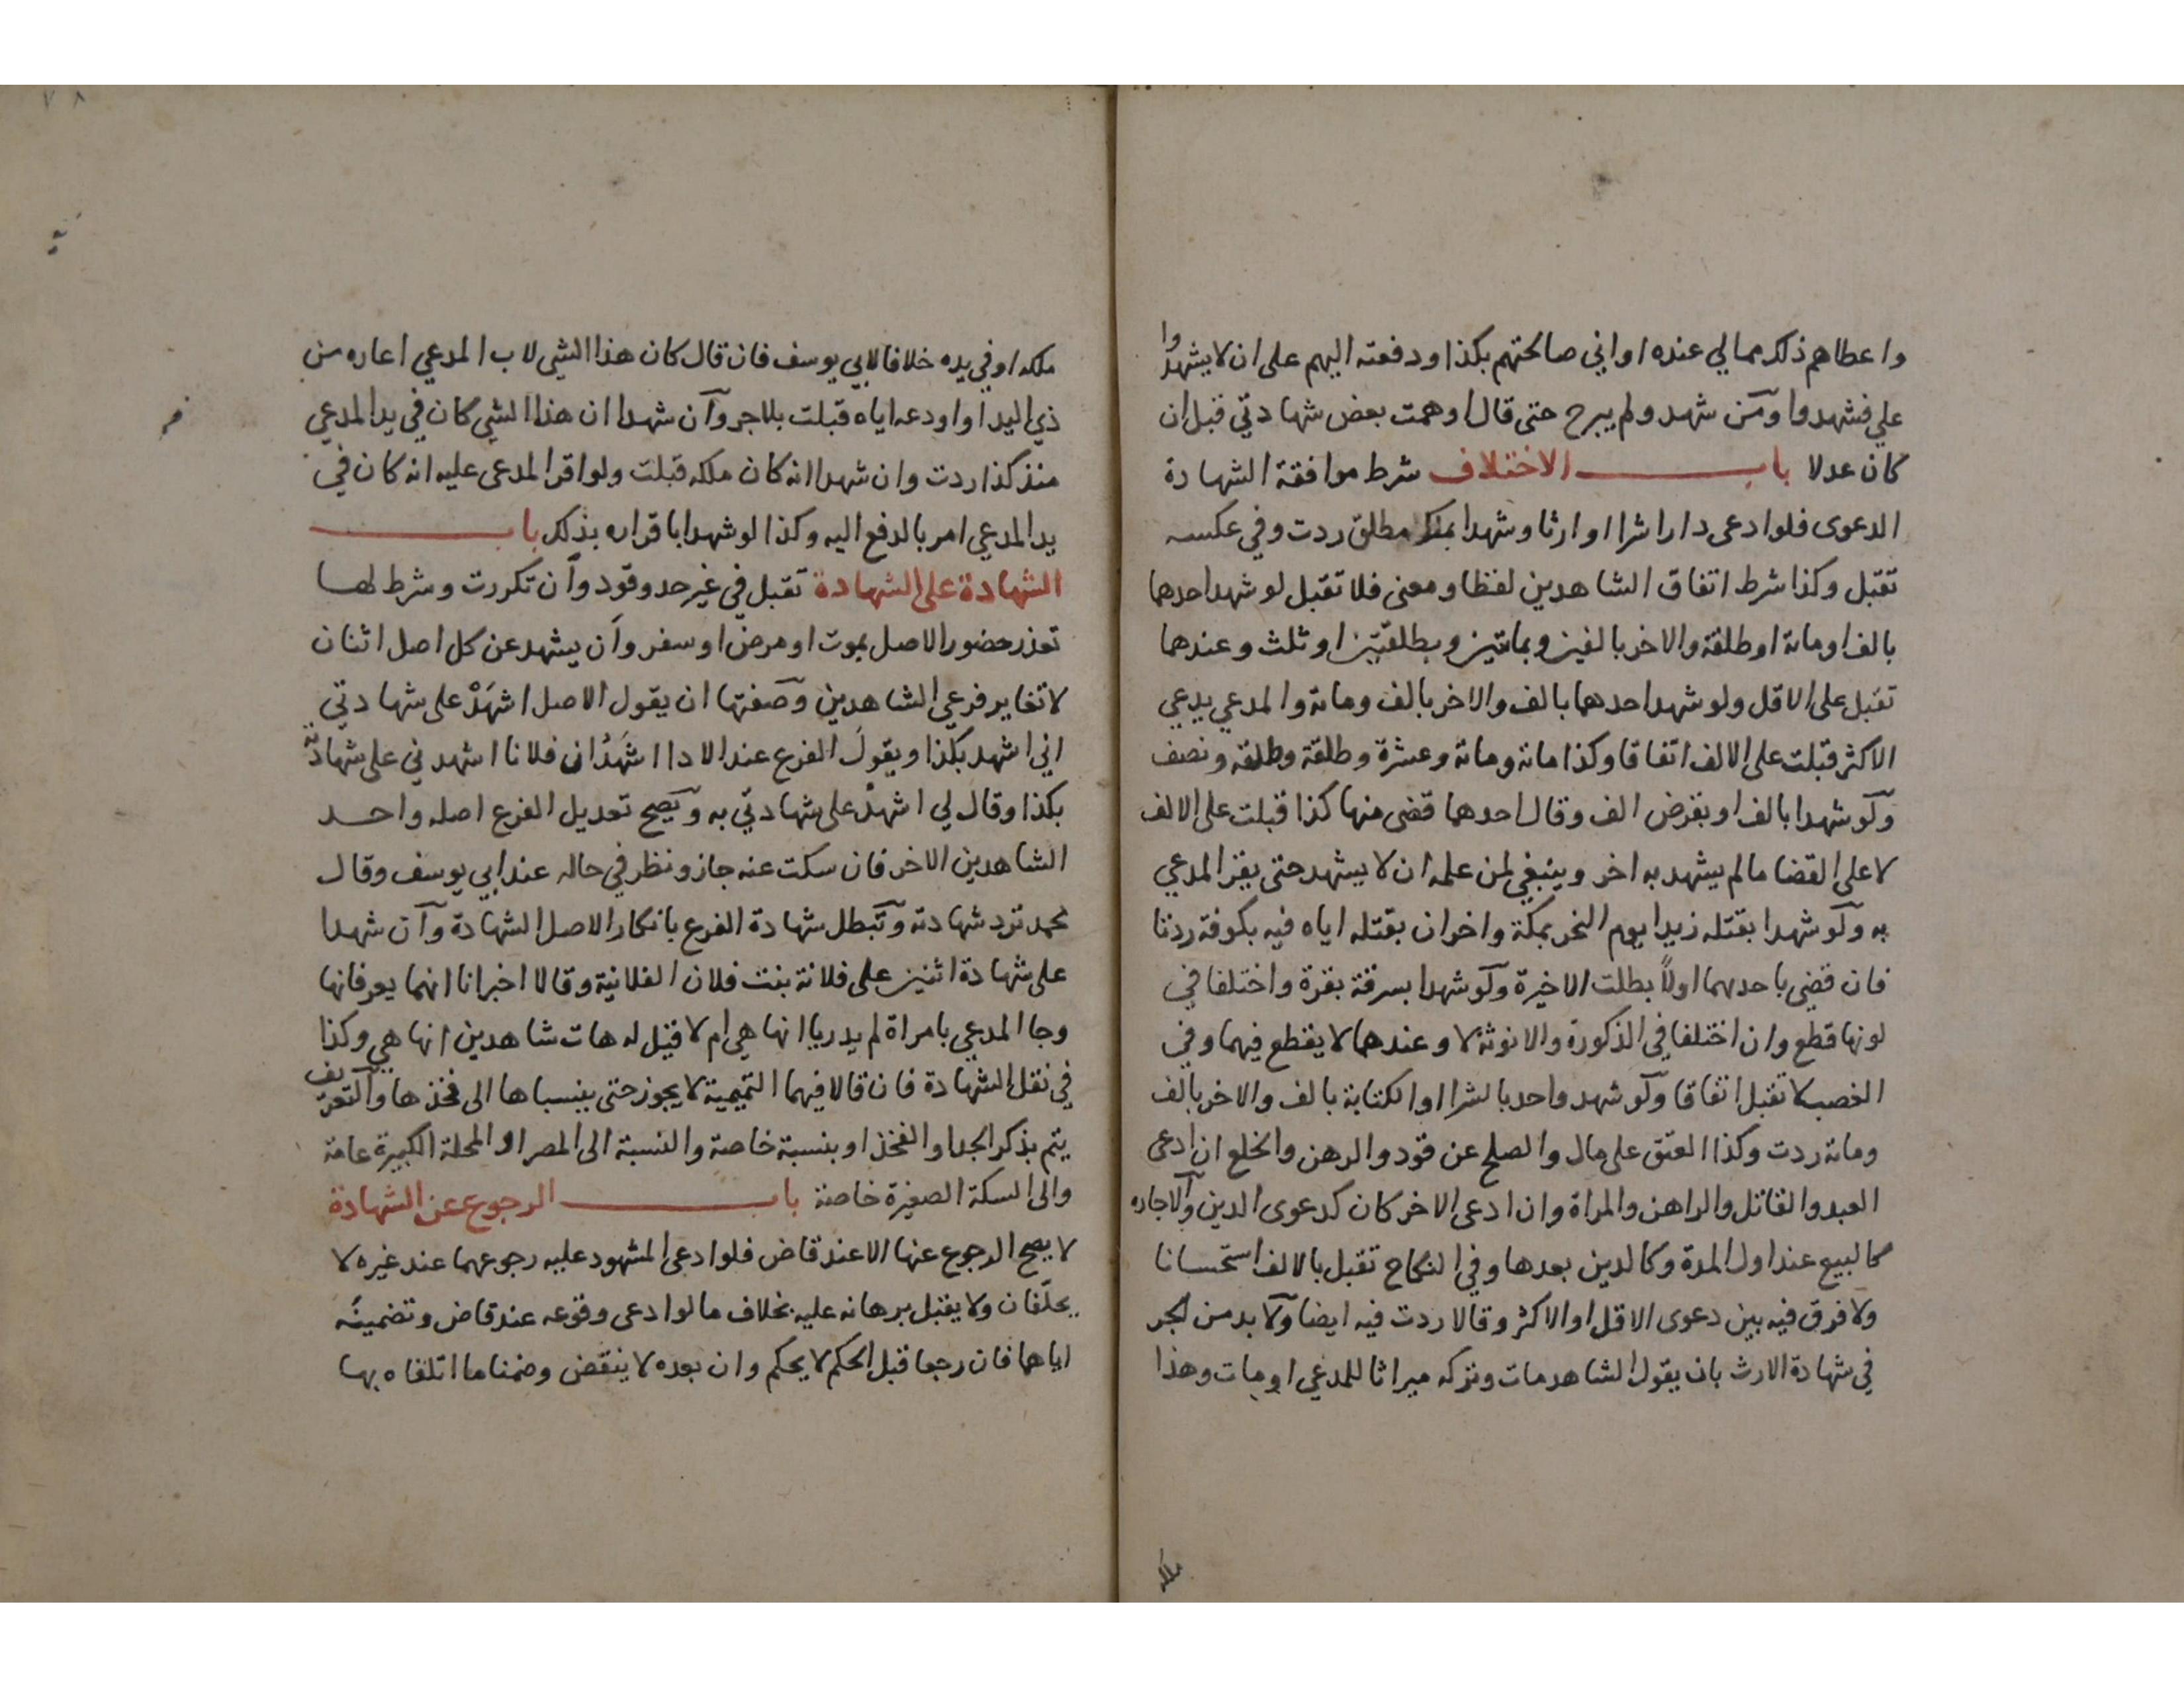 واعطاهم ذلك مما لي عنده او اني صالحتهم بكذا ودفعته اليهم على ان لا يشهدوا
علي فشهدوا ومن شهد ولم يبرح حتى قال اوهمت بعض شهادتي قبل ان
كان عدلا باب الاختلاف شرط موافقة الشهادة
الدعوى فلو ادعى دارا شرا او ارثا وشهدا بملك مطلق ردت وفي عكسه
تقبل وكذا شرط اتفاق الشاهدين لفظا ومعنى فلا تقبل لو شهد احدهما
بالف او مائة او طلقة والاخر بالفين وبمائتين وبطلقتين او ثلث وعندهما
تقبل على الاقل ولو شهد احدهما بالف والاخر بالف ومائة والمدعي يدعي
الاكثر قبلت على الالف اتفاقا وكذا مائة ومائة وعشرة وطلقة وطلقة ونصف
ولو شهدا بالف او بقرض الف وقال احدهما قضى منها كذا قبلت على الالف
لا على القضا ما لم يشهد به اخر وينبغي لمن علمه ان لا يشهد حتى يقر المدعي
به ولو شهدا بقتله زيدا يوم النحر بمكة واخران بقتله اياه فيه بكوفة ردتا
فان قضي باحديهما اولا بطلت الاخيرة ولو شهدا بسرقة بقرة واختلفا في
لونها قطع وان اختلفا في الذكورة والانوثة لا وعندهما لا يقطع فيهما وفي
الغصب لا تقبل اتفاقا ولو شهد واحد بالشرا او الكتابة بالف والاخر بالف
ومائة ردت وكذا العتق على مال والصلح عن قود والرهن والخلع ان ادعى
العبد والقاتل والراهن والمراة وان ادعى الاخر كان كدعوى الدين والاجاره
كالبيع عند اول المدة وكالدين بعدها وفي النكاح تقبل بالالف استحسانا
ولا فرق فيه بين دعوى الاقل او الاكثر وقالا ردت فيه ايضا ولا بد من الجر
في شهادة الارث بان يقول الشاهد مات وتركه ميراثا للمدعي او مات وهذا
ملكه او في يده خلافا لابي يوسف فان قال كان هذا الشي لاب المدعي اعاره من
ذي اليد او اودعه اياه قبلت بلا جر وان شهدا ان هذا الشي كان في يد المدعي
منذ كذا ردت وان شهدا انه كان ملكه قبلت ولو اقر المدعى عليه انه كان في
يد المدعي امر بالدفع اليه وكذا لو شهدا باقراره بذلك باب
الشهادة على الشهادة تقبل في غير حد وقود وان تكررت وشرط لها
تعذر حضور الاصل بموت او مرض او سفر وان يشهد عن كل اصل اثنان
لا تغاير فرعي الشاهدين وصفتها ان يقول الاصل اشهد على شهادتي
اني اشهد بكذا ويقول الفرع عند الادا اشهد ان فلانا اشهدني على شهادته
بكذا وقال لي اشهد على شهادتي به ويصح تعديل الفرع اصله واحد
الشاهدين الاخر فان سكت عنه جاز ونظر في حاله عند ابي يوسف وقال
محمد ترد شهادته وتبطل شهادة الفرع بانكار الاصل الشهادة وان شهدا
على شهادة اثنين على فلانة بنت فلان الفلانية وقالا اخبرانا انهما يعرفانها
وجا المدعي بامراة لم يدريا انها هي ام لا قيل له هات شاهدين انها هي وكذا
في نقل الشهادة فان قالا فيهما التميمية لا يجوز حتى ينسباها الى فخذها والتعريف
يتم بذكر الجد او الفخذ او بنسبة خاصة والنسبة الى المصر او المحلة الكبيرة عامة
والى السكة الصغيرة خاصة باب الرجوع عن الشهادة
لا يصح الرجوع عنها الا عند قاض فلو ادعى المشهود عليه رجوعهما عند غيره لا
يحلفان ولا يقبل برهانه عليه بخلاف ما لو ادعى وقوعه عند قاض وتضمينه
اياهما فان رجعا قبل الحكم لا يحكم وان بعده لا ينقض وضمنا ما اتلفاه بها